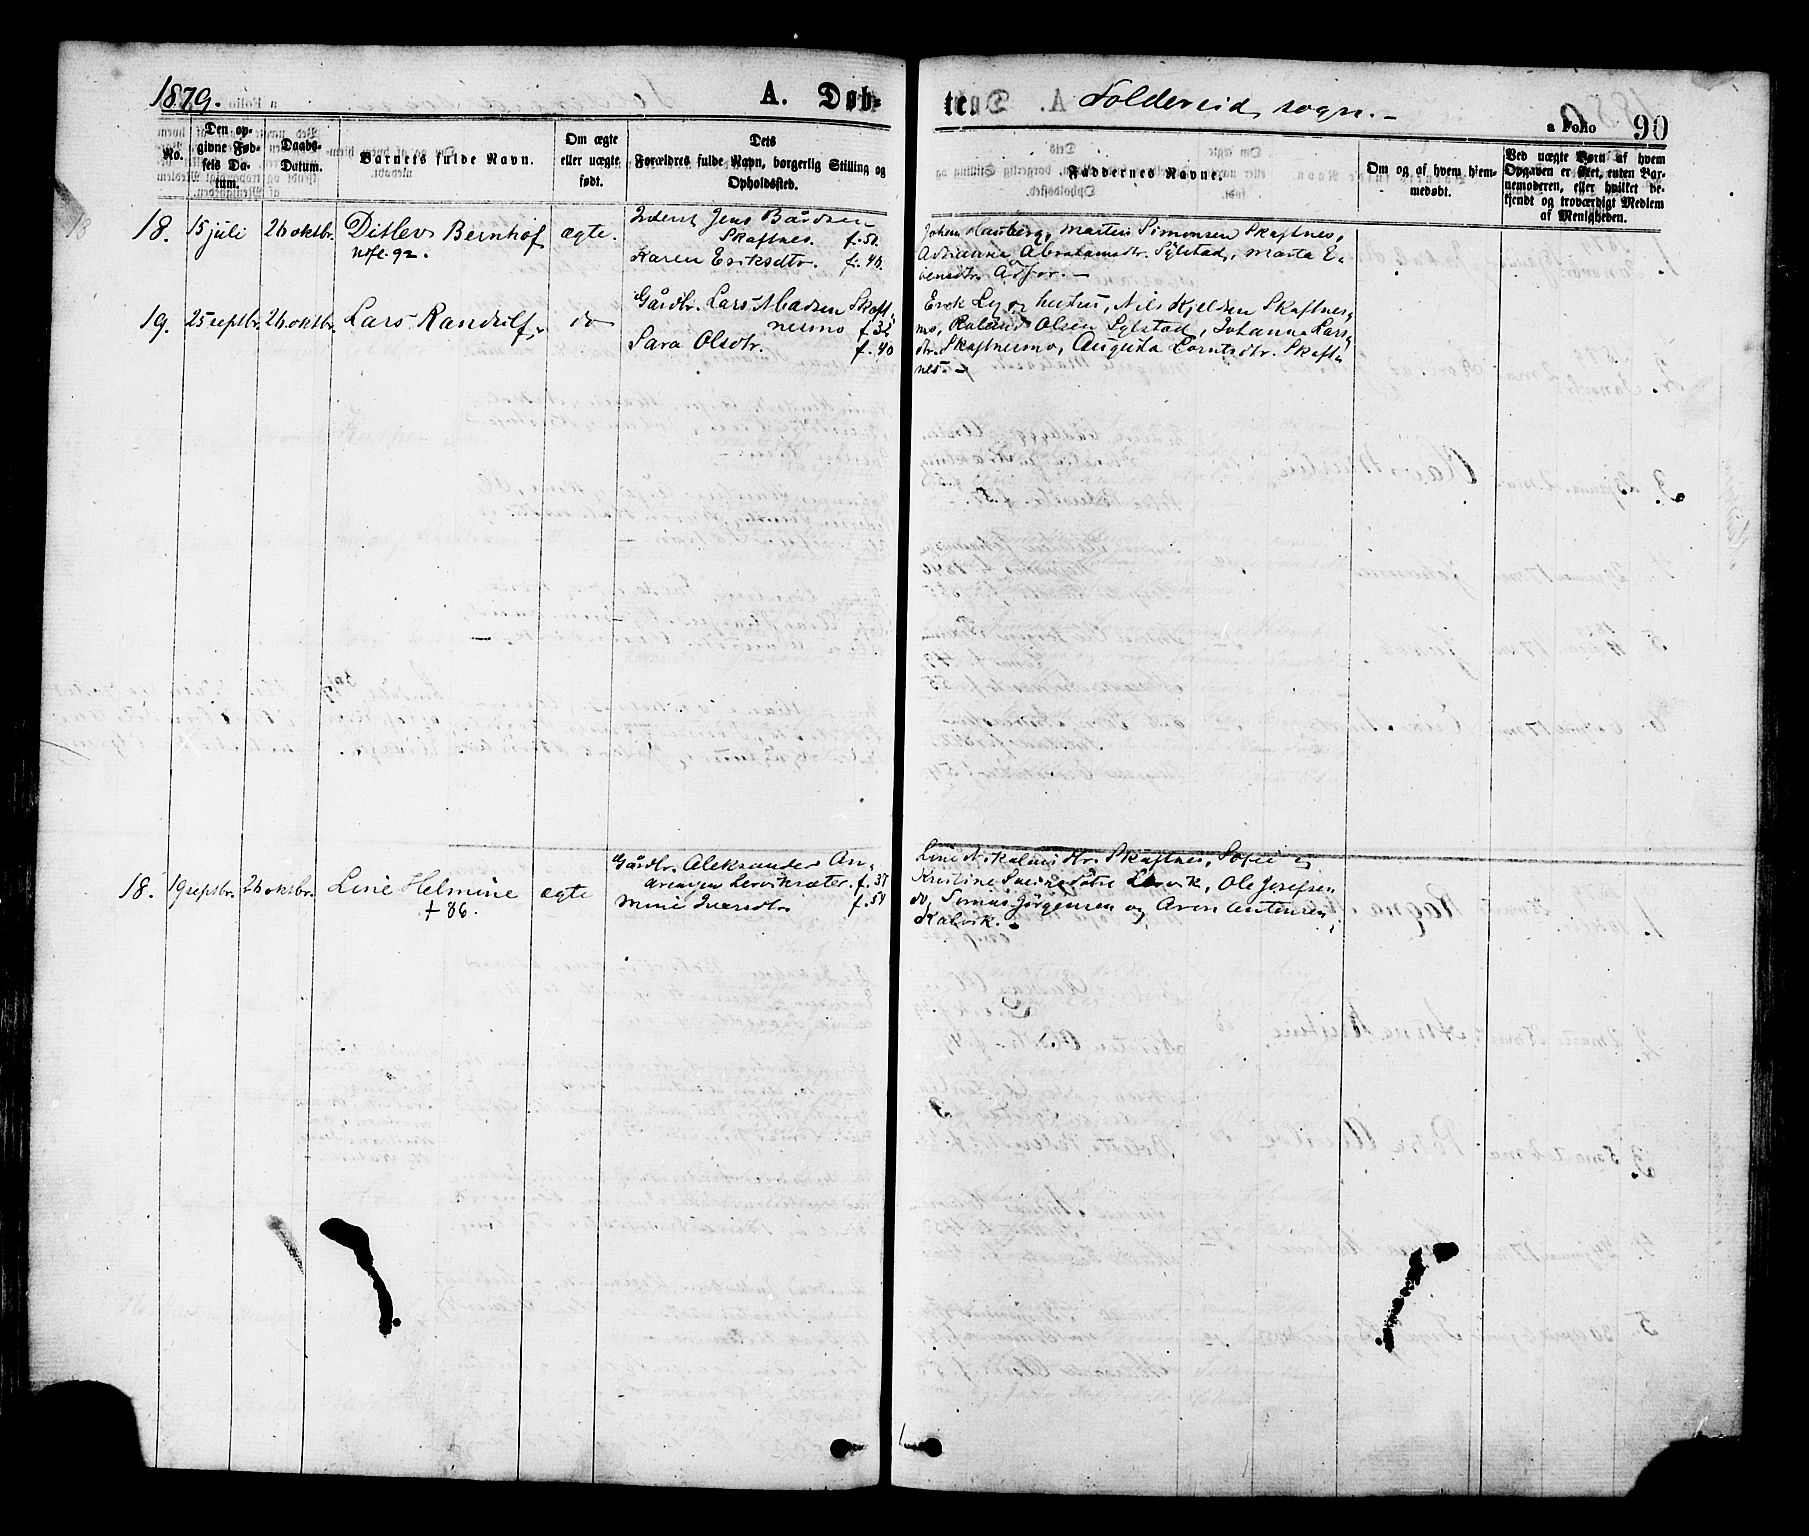 1879. A. Døb- te Foldereid sogn.-
a Folio 90
No.
Den op-
givne Fød-
sels Da-
tum.
Daabs-
Datum.
Barnets fulde Navn.
Om ægte
eller uægte
født.
Dets
Forældres fulde Navn, borgerlig Stilling og
Opholdssted.
Faddernes Navne.
Om og af hvem hjem-
medøbt.
Ved uægte Børn af hvem
Opgaven er sket, enten Bar-
nemoderen, eller hvilket be-
kjendt og troværdigt Medlem
af Menigheden.
18. 15 juli 26 oktbr. Ditlev Bernhof ægte.
Inderst Jens Bårdsen
Skaftnes. f. 50.
Karen Eriksdtr. f. 40.
Johan Hauberg, Martin Simonsen Skaftnes,
Adrianna Abrahamsdtr. Sylstad, Marta E-
19. 25 septbr. 26 oktbr. Lars Randulf, do
Gårdbr. Lars Madsen Skaft-
nesmo f. 32
Sara Olsdtr. f. 40
Erik Ly og hustru, Nils Kjelsen Skaftnes-
mo, Roland Olsen Sylstad, Johanna Lars-
dtr. Skaftnesmo, Augusta Corntsdtr. Skaft-
nes.-
18. 19 septbr. 26 oktbr. Line Helmine ægte
+ 86.
Gårdbr. Aleksander An-
Lervikræter. f. 37
Mine Iversdtr. f. 54
Line Nikolaisdtr. Skaftnes, Sofie og
Kristine Lervik, Ole Josefsen
do, Simus Jörgensen og Aron Antonsen
Kalvik.-